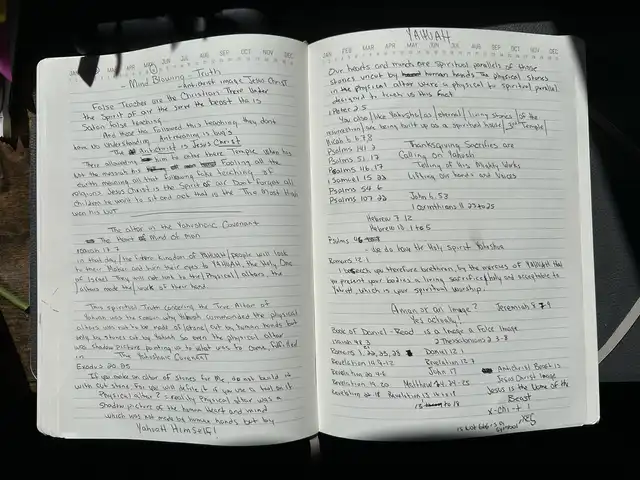 JAN FEB MAR APR MAY JUN JUL AUG SEP OCT NOV DEC
- Mind Blowing - Truth
- Antichrist image Jesus Christ
False Teacher are the Christian There Under
the Spirit of air the serve the beast He is
Satan false teaching
And those that followed this teaching they dont
have No understanding
The Antichrist is Jesus Christ
There allowing him to enter there Temple when his
not the messiah his Fooling all the
earth meaning all that following take teaching of
religions Jesus Christ is the Spirit of air Don't forget all
children he want to sit and not that is the The Most High
The altar in the Yahushaic Covenant
The Heart & Mind of Man
Isaiah 17:7
in that day/the future Kingdom of Yahuah/people will look
to their Maker and turn their eyes to YAHUAH, the Holy One
of Israel. They will not look to the/Physical/altars, the
altars made the/work of their hand
This spiritual Truth concering the True Altar of
Yahuah was the reason why Yahuah commanded the physical
altars was not to be made of (stone) cut by human hands but
only by stones cut by Yahuah So even the physical altar
was shadow picture, pointing to what was to come, fulfilled
in The Yahushaic Covenant
Exodus 20:25
If you make an altar of stones for Me, do not build it
with cut stone for you will defile it if you use a tool on it
Physical altar? = reality Physical altar was a
shadow picture of the human heart and mind
which was not made by human hands but by
Yahuah Himself!
YAHUAH
JAN FEB MAR APR MAY JUN JUL AUG SEP OCT NOV DEC
Our hearts and minds are spiritual parallels of those
stones uncut by human hands The physical stones
in the physical altar were a physical to spiritual parallel
designed to teach us this fact
1 Peter 2:5
You also/like Yahusha/as/eternal/living stones/of the
resurrection/are being built up as a spiritual house/3rd Temple/
Micah 6:6-8
Psalms 141:2 Thanksgiving Sacrifies are
Psalms 51:17 Calling on Yahuah
Psalms 116:17 Telling of His Mighty Works
1 Samuel 15:22 Lifting our hands and Voices
Psalms 54:6
Psalms 107:22 John 6:53
1 Corinthians 11:23 to 25
Hebrew 7:12
Hebrew 10:1 to 5
Psalms
- We do have the Holy Spirit Yahusha
Romans 12:1
I beseech you therefore brethren, by the mercies of YAHUAH that
to present your bodies a living sacrifice/holy and acceptable to
Yahuah, which is your spiritual worship/
A man or an Image? Jeremiah 3:7-9
Yes actually!
Book of Daniel - Read is a Image a False Image
Isaiah 48:3 2 Thessalonians 2:3-8
Romans 1:22,23,25 Daniel 12:1
Revelation 14:9-12 Revelation 12:7
Revelation 20:4-6 John 17
Revelation 19:20 Matthew 24:24-25
Antichrist Beast is
Jesus Christ Image
Jesus is the Name of the
Beast
X-chi-t!
is Not 666 is a symbol